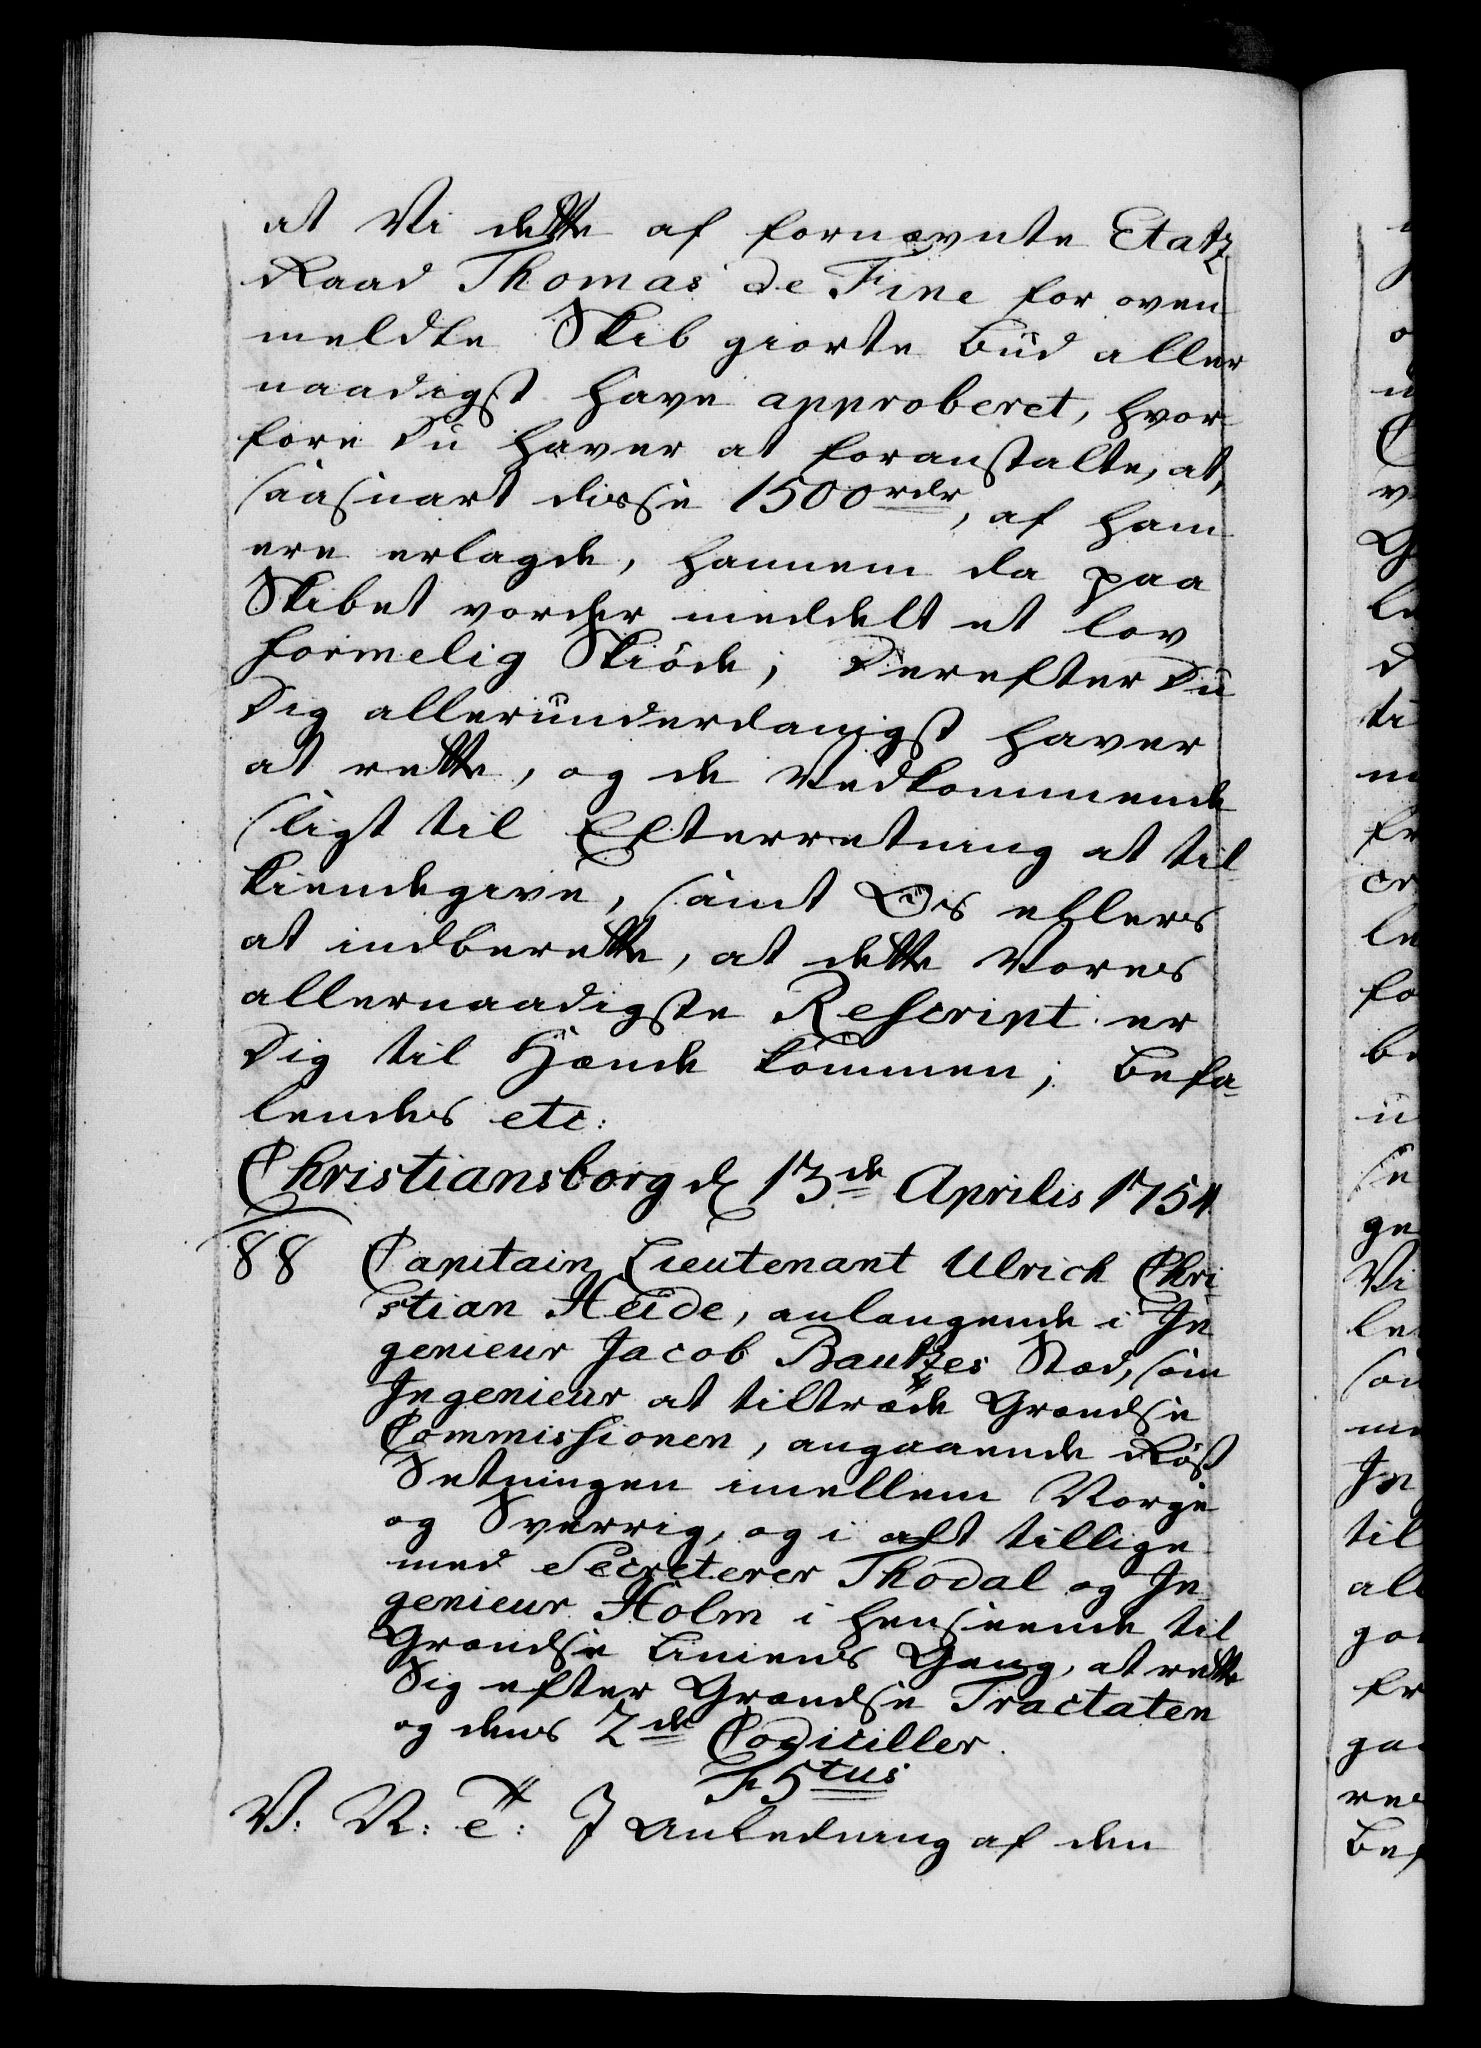 at Vi dette af fornævnte Etatz
Raad Thomas de Fine for oven
meldte Skib giorte Bud aller
naadigst have approberet, hvor
fore Du haver at foranstalte, at,
saasnart disse 1500 rdr, af ham
ere erlagde, hannem da paa
Skibet vorder meddelt et lov
formelig Skiöde; Derefter Du
Dig allerunderdanigst haver
at rette, og de Vedkommende
sligt til Efterretning at til-
kiendegive, samt Os ellers
at indberette, at dette Vores
allernaadigste Rescript er
Dig til Hænde kommen; Befa-
lendes etc:
Christiansborg d 13de Aprilis 1754
88 Capitain Lieutenant Ulrich Chri-
stian Heide, anlangende i In
genieur Jacob Bautzes Stæd, som
Ingenieur at tiltræde Grændse
Commissionen, angaaende Röst
Setningen imellem Norge
og Sverrig, og i alt tillige
med Secreterer Thodal og In-
genieur Holm i henseende til
Grændse Liniens Gang, at rette
Sig efter Grændse Tractaten
og dens 2de Codiciller.
F 5tus
V: V: et: I Anledning af den